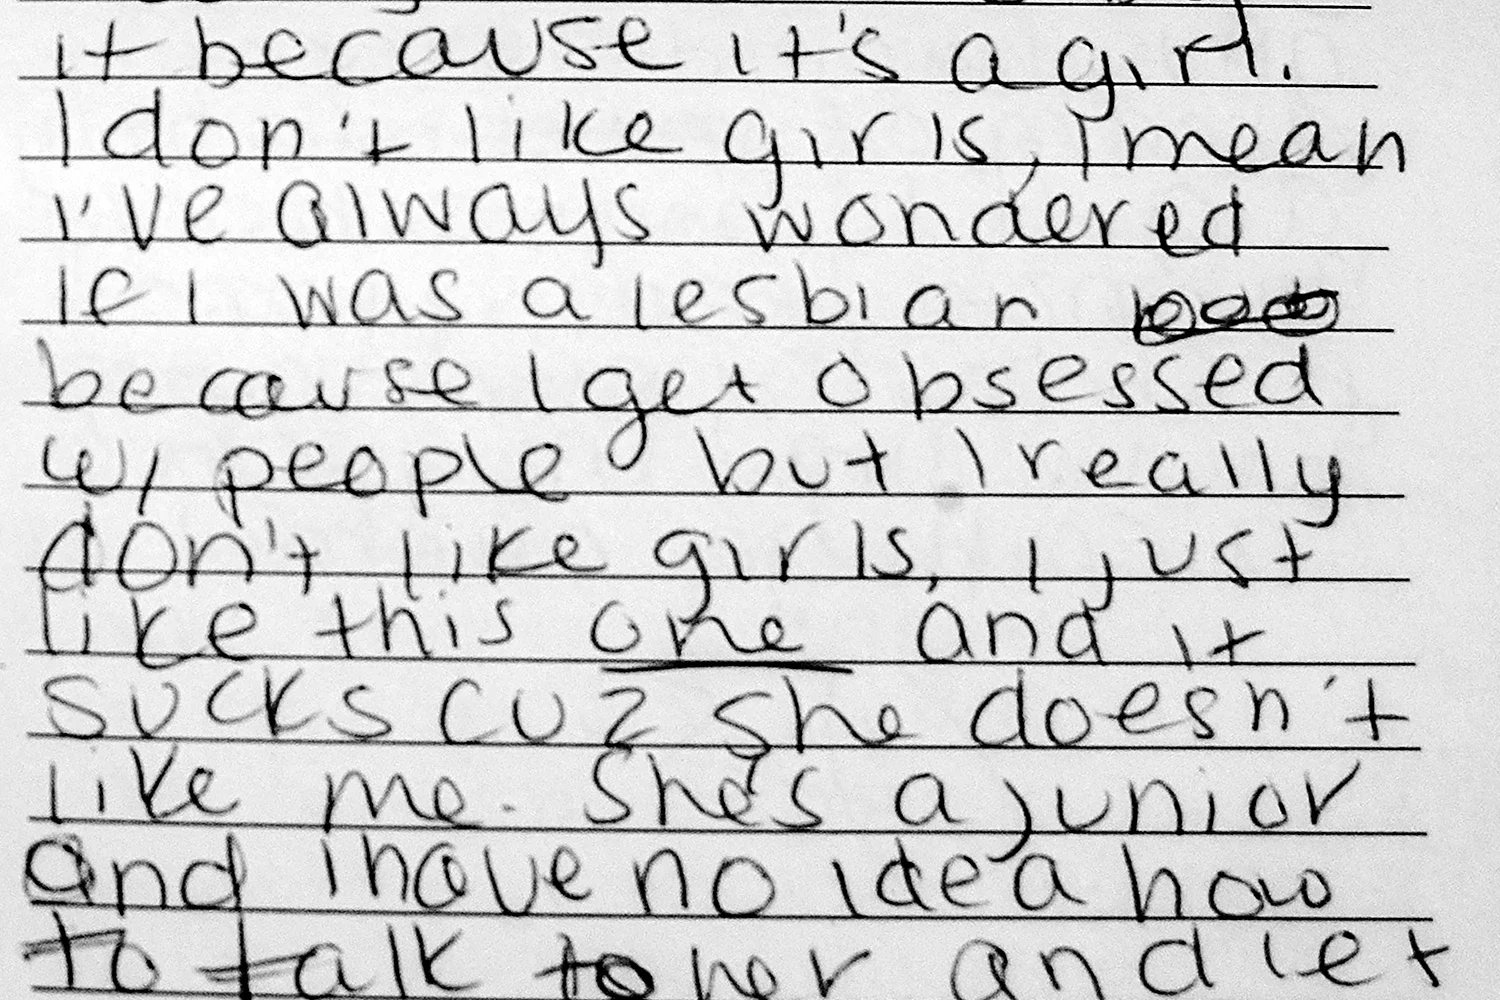 it because it's a girl.
I don't like girls, I mean
I've always wondered
If I was a lesbian
because I get obsessed
w/ people but I really
don't like girls, I just
like this one and it
sucks cuz she doesn't
like me. She's a junior
and I have no idea how
to talk to her and let